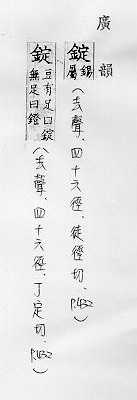 廣韻
錠 錫屬(去聲、四十六徑、徒徑切、P.432)
錠 豆有足曰錠無足曰鐙(去聲、四十六徑、丁定切、P.432)